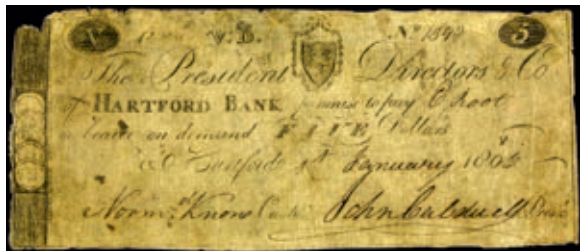 V V.D. Nº 1849 5
The President Directors & Co
of HARTFORD BANK promise to pay C. Root
or bearer on demand FIVE Dollars
Hartford 1st January 1802
Knox Cash John Caldwell Presid